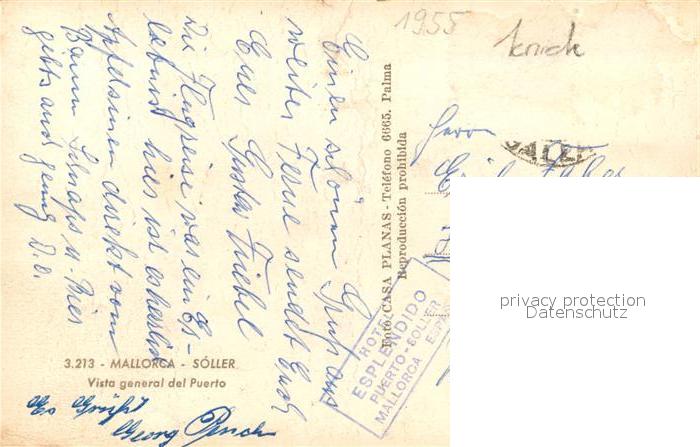 1955
knick
Einen schönen Gruß aus
weiter Ferne sendet Euch
Euer Gustav Friebel
Die Flugreise war ein Er-
lebnis hier ist es herrlich
Apfelsinen direkt vom
Baum Schnaps u. Bier
gibts auch genug D.O.
Foto CASA PLANAS - Teléfono 6665. Palma
Reproducción prohibida
Herrn
HOTEL
ESPLENDIDO
PUERTO-SOLLER
MALLORCA
privacy protection
Datenschutz
3.213 - MALLORCA - SÓLLER
Vista general del Puerto
Es Grüßt
Georg